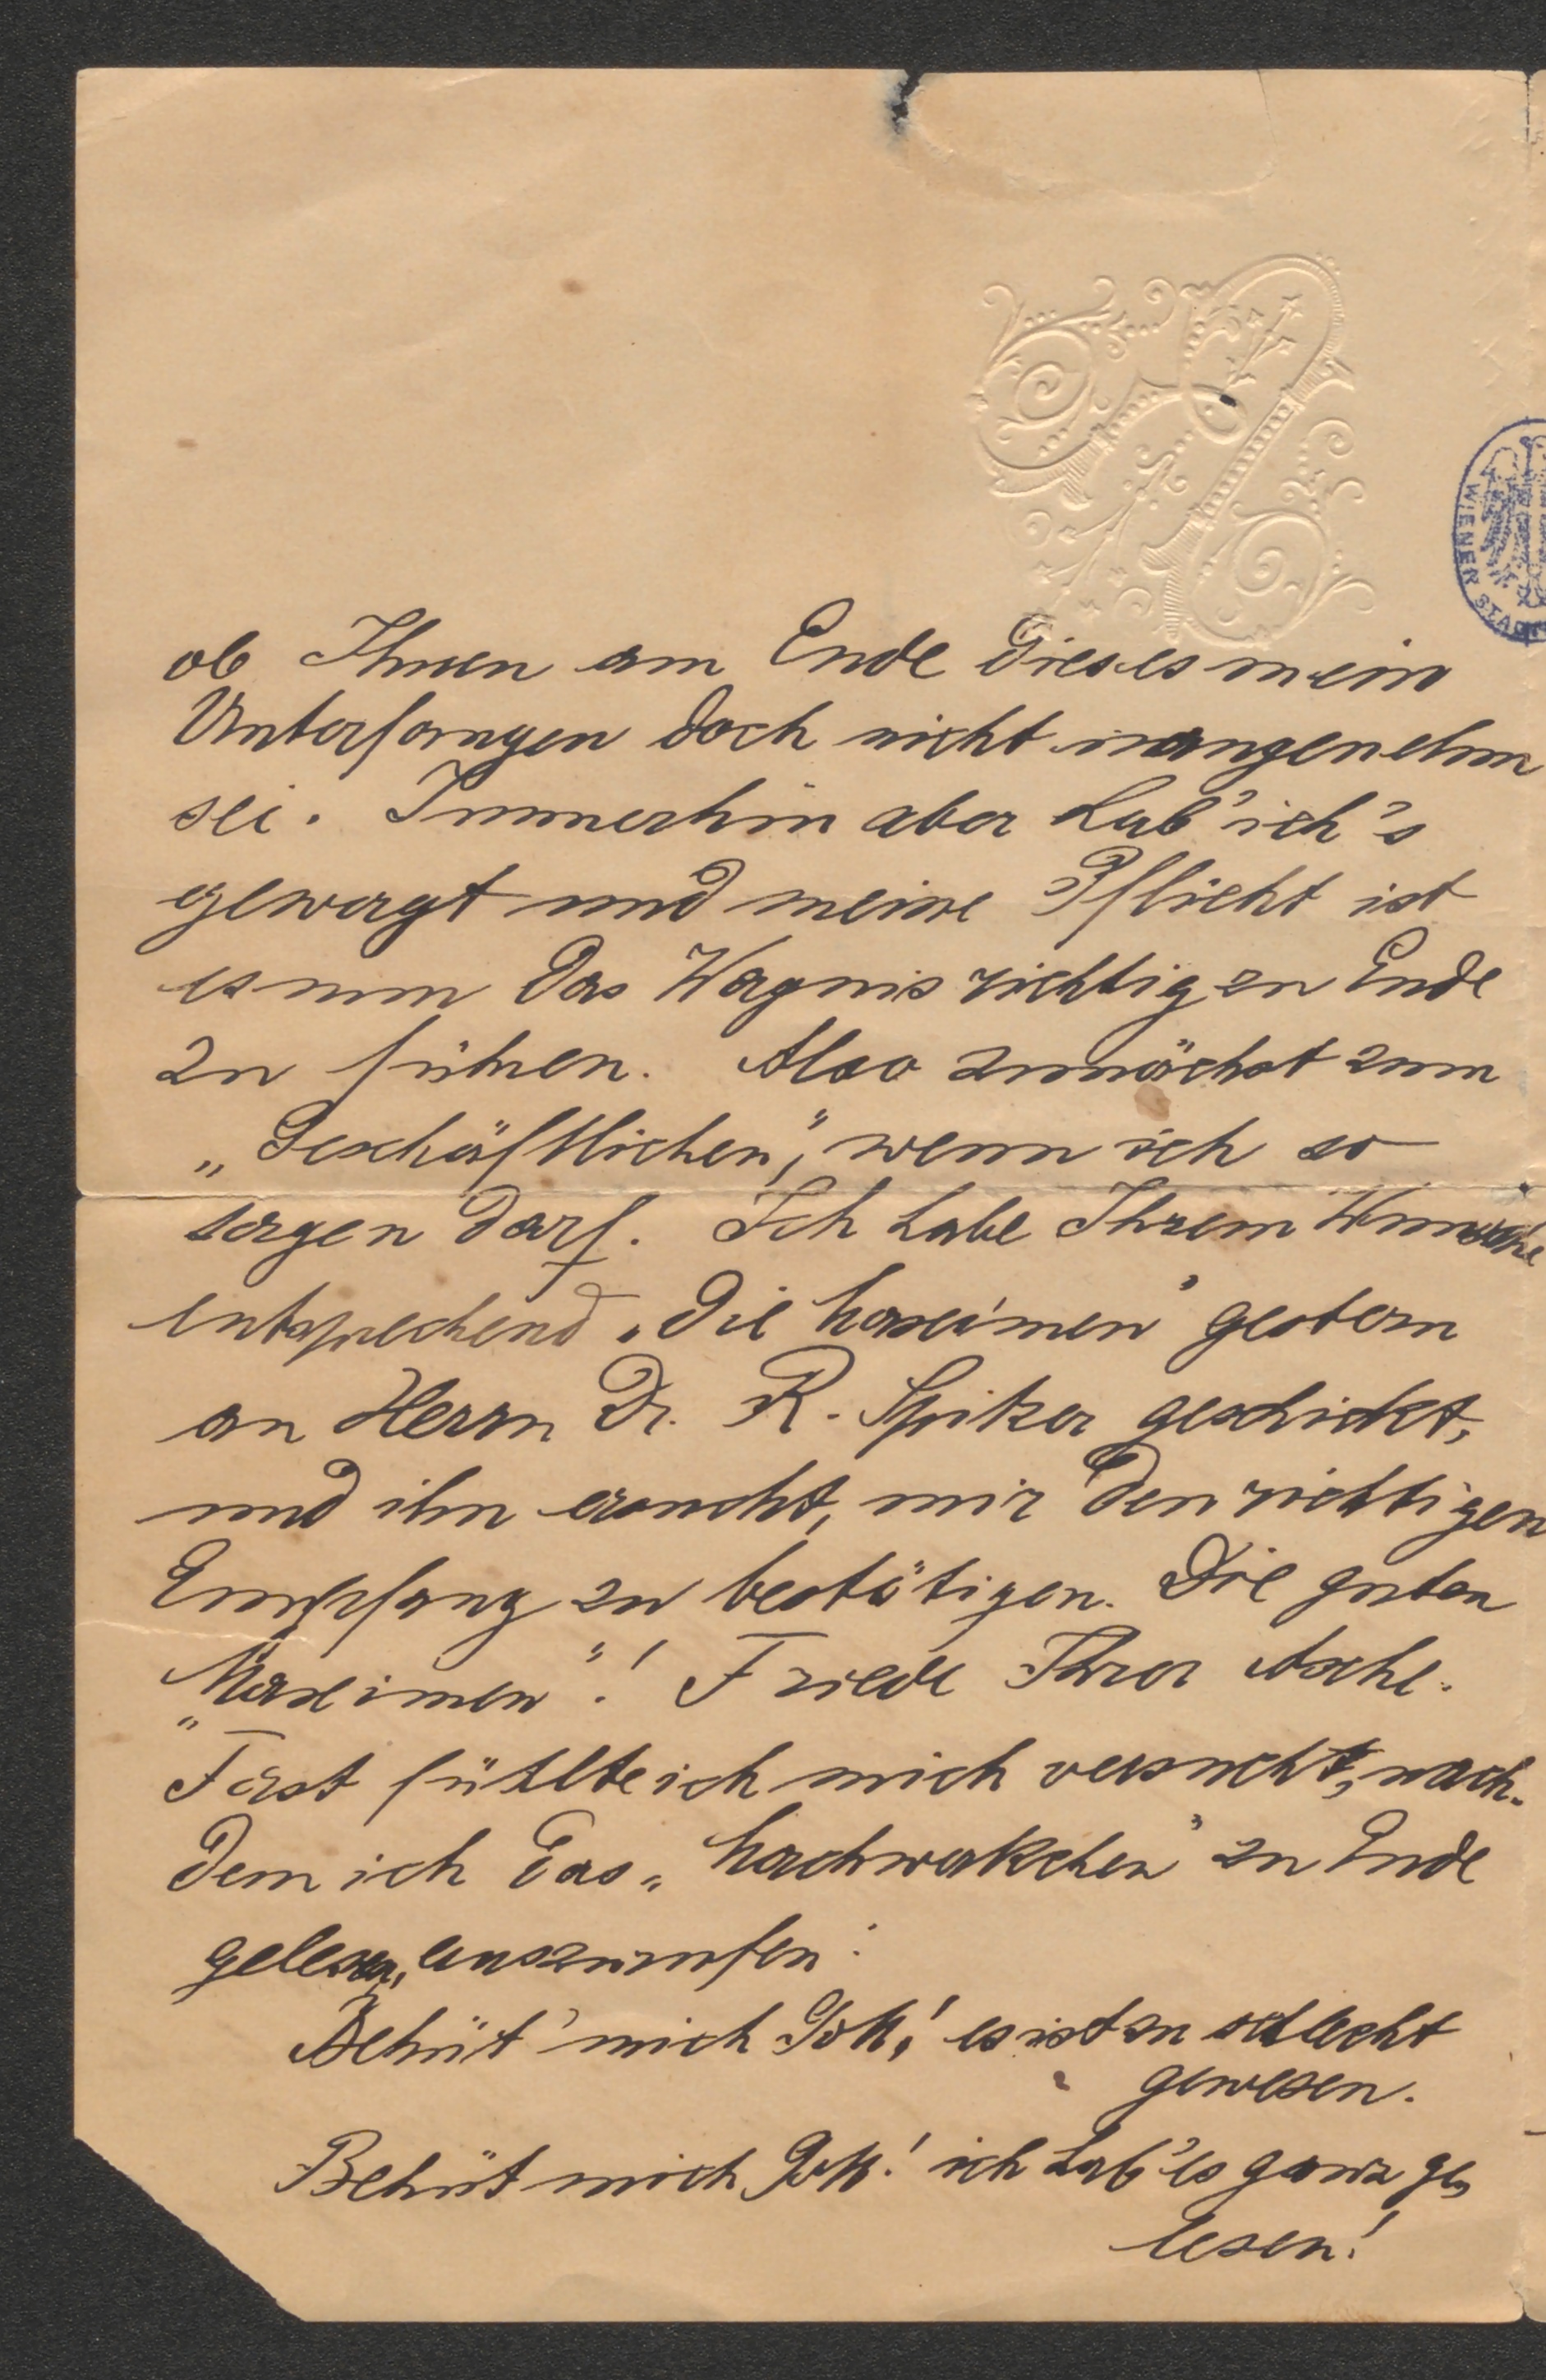 WIENER STADT
ob Ihnen am Ende dieses mein
Unterfangen doch nicht unangenehm
sei. Immerhin aber hab' ich's
gewagt und meine Pflicht ist
es nun das Wagnis richtig zu Ende
zu führen. Also zunächst zum
„Geschäftlichen", wenn ich so
sagen darf. Ich habe Ihrem Wunsche
entsprechend „die Maximen" gestern
an Herrn Dr. R. Spitzer geschickt,
und ihn ersucht, mir den richtigen
Empfang zu bestätigen. Die guten
„Maximen"! Friede Ihrer Asche.
Fast fühlte ich mich versucht, nach-
dem ich das „Machwerkchen" zu Ende
gelesen, auszurufen:
Behüt' mich Gott! es ist zu schlecht
gewesen.
Behüt mich Gott! ich hab' es ganz ge-
lesen!